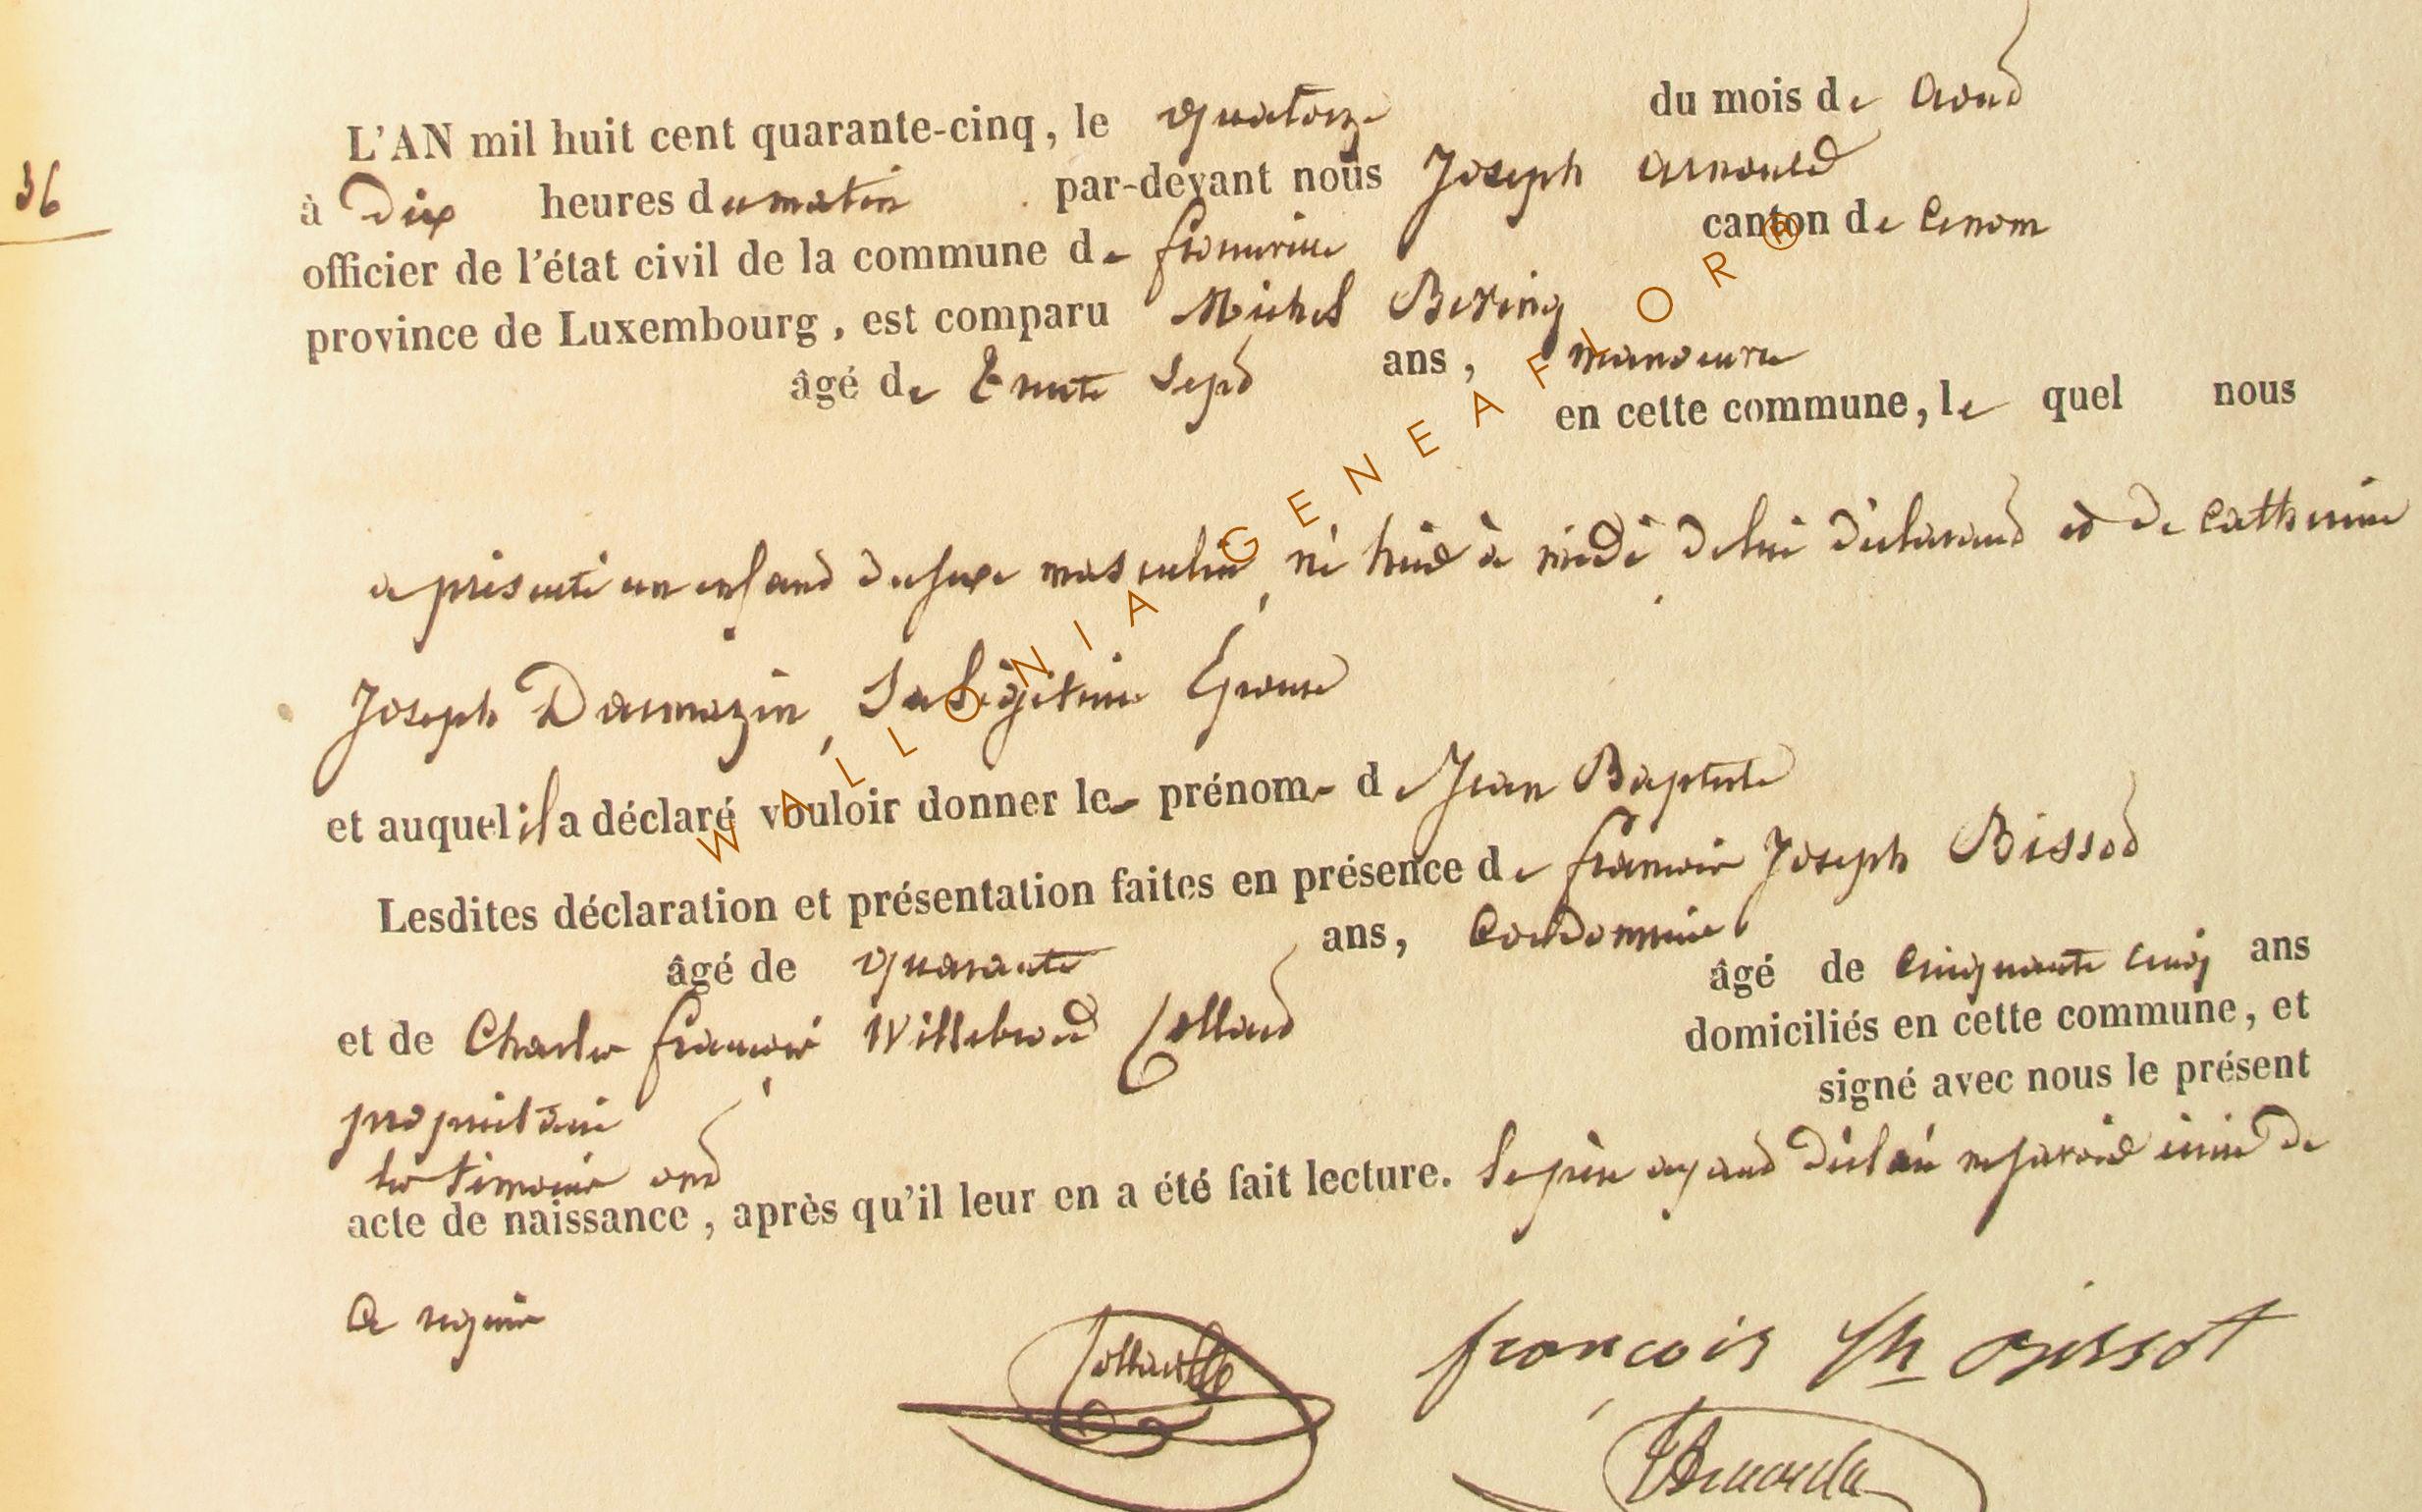 36
L'AN mil huit cent quarante-cinq, le quatorze du mois de aout
à Dix heures du matin par-devant nous Joseph arnould
officier de l'état civil de la commune de canton de
province de Luxembourg, est comparu Michel
âgé de Trente Sept ans, manoeuvre
en cette commune, le quel nous
a présenté un enfant du sexe masculin, né hier à midi de lui déclarant et de Catherine
Joseph Darmazin, Sa légitime Epouse
et auquel il a déclaré vouloir donner le prénom de Jean Baptiste
Lesdites déclaration et présentation faites en présence de francois Joseph Bissot
âgé de quarante ans, Cordonnier
et de Charles francois Willebrod Collard âgé de cinquante cinq ans
propriétaire domiciliés en cette commune, et
les témoins ont signé avec nous le présent
acte de naissance, après qu'il leur en a été fait lecture. Le père ayant déclaré ne savoir écrire de
Ce requis
francois Jh Bissot
WALLONIA GENEAFLOR ®